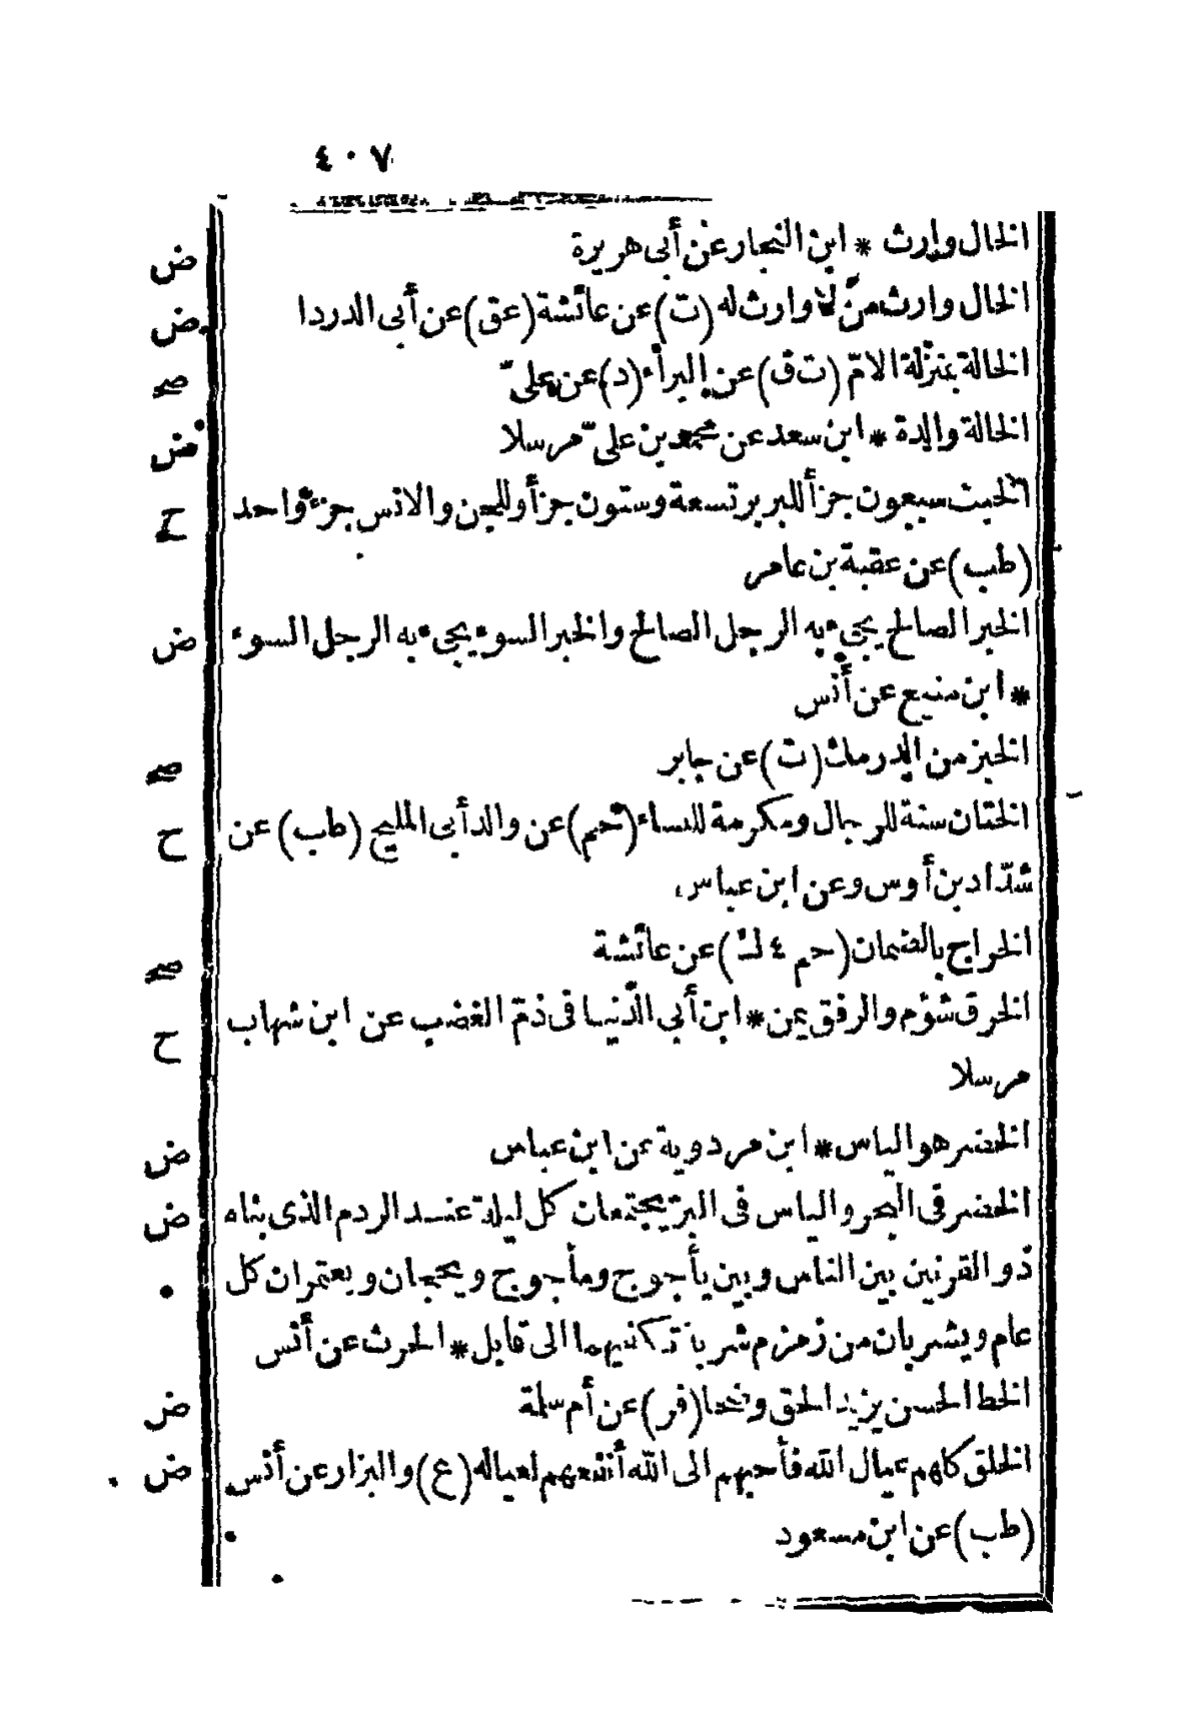 ٤٠٧
الخال وارث * ابن النجار عن أبى هريرة
ض
الخال وارث من لا وارث له (ت) عن عائشة (عق) عن أبى الدردا
ض
الخالة بمنزلة الامّ (ت ق) عن البراء (د) عن علىّ
صح
الخالة والدة * ابن سعد عن محمد بن علىّ مرسلا
ض
الخبث سبعون جزأ للبربر تسعة وستون جزأ وللجن والانس جزء واحد
ح
(طب) عن عقبة بن عامر
الخبر الصالح يجىء به الرجل الصالح والخبر السوء يجىء به الرجل السوء
ض
* ابن منيع عن أنس
الخبز من الدرمك (ت) عن جابر
صح
الختان سنة للرجال ومكرمة للنساء (حم) عن والد أبى المليح (طب) عن
ح
شدّاد بن أوس وعن ابن عباس
الخراج بالضمان (حم ٤ ك) عن عائشة
صح
الخرق شؤم والرفق يمن * ابن أبى الدّنيا فى ذمّ الغضب عن ابن شهاب
ح
مرسلا
الخضر هو الياس * ابن مردوية عن ابن عباس
ض
الخضر فى البحر والياس فى البرّ يجتمعان كل ليلة عند الردم الذى بناه
ض
ذو القرنين بين الناس وبين يأجوج ومأجوج ويحجان ويعتمران كل
عام ويشربان من زمزم شربة تكفيهما الى قابل * الحرث عن أنس
الخط الحسن يزيد الحق وضحا (فر) عن أم سلمة
ض
الخلق كلهم عيال الله فأحبهم الى الله أنفعهم لعياله (ع) والبزار عن أنس
ض
(طب) عن ابن مسعود